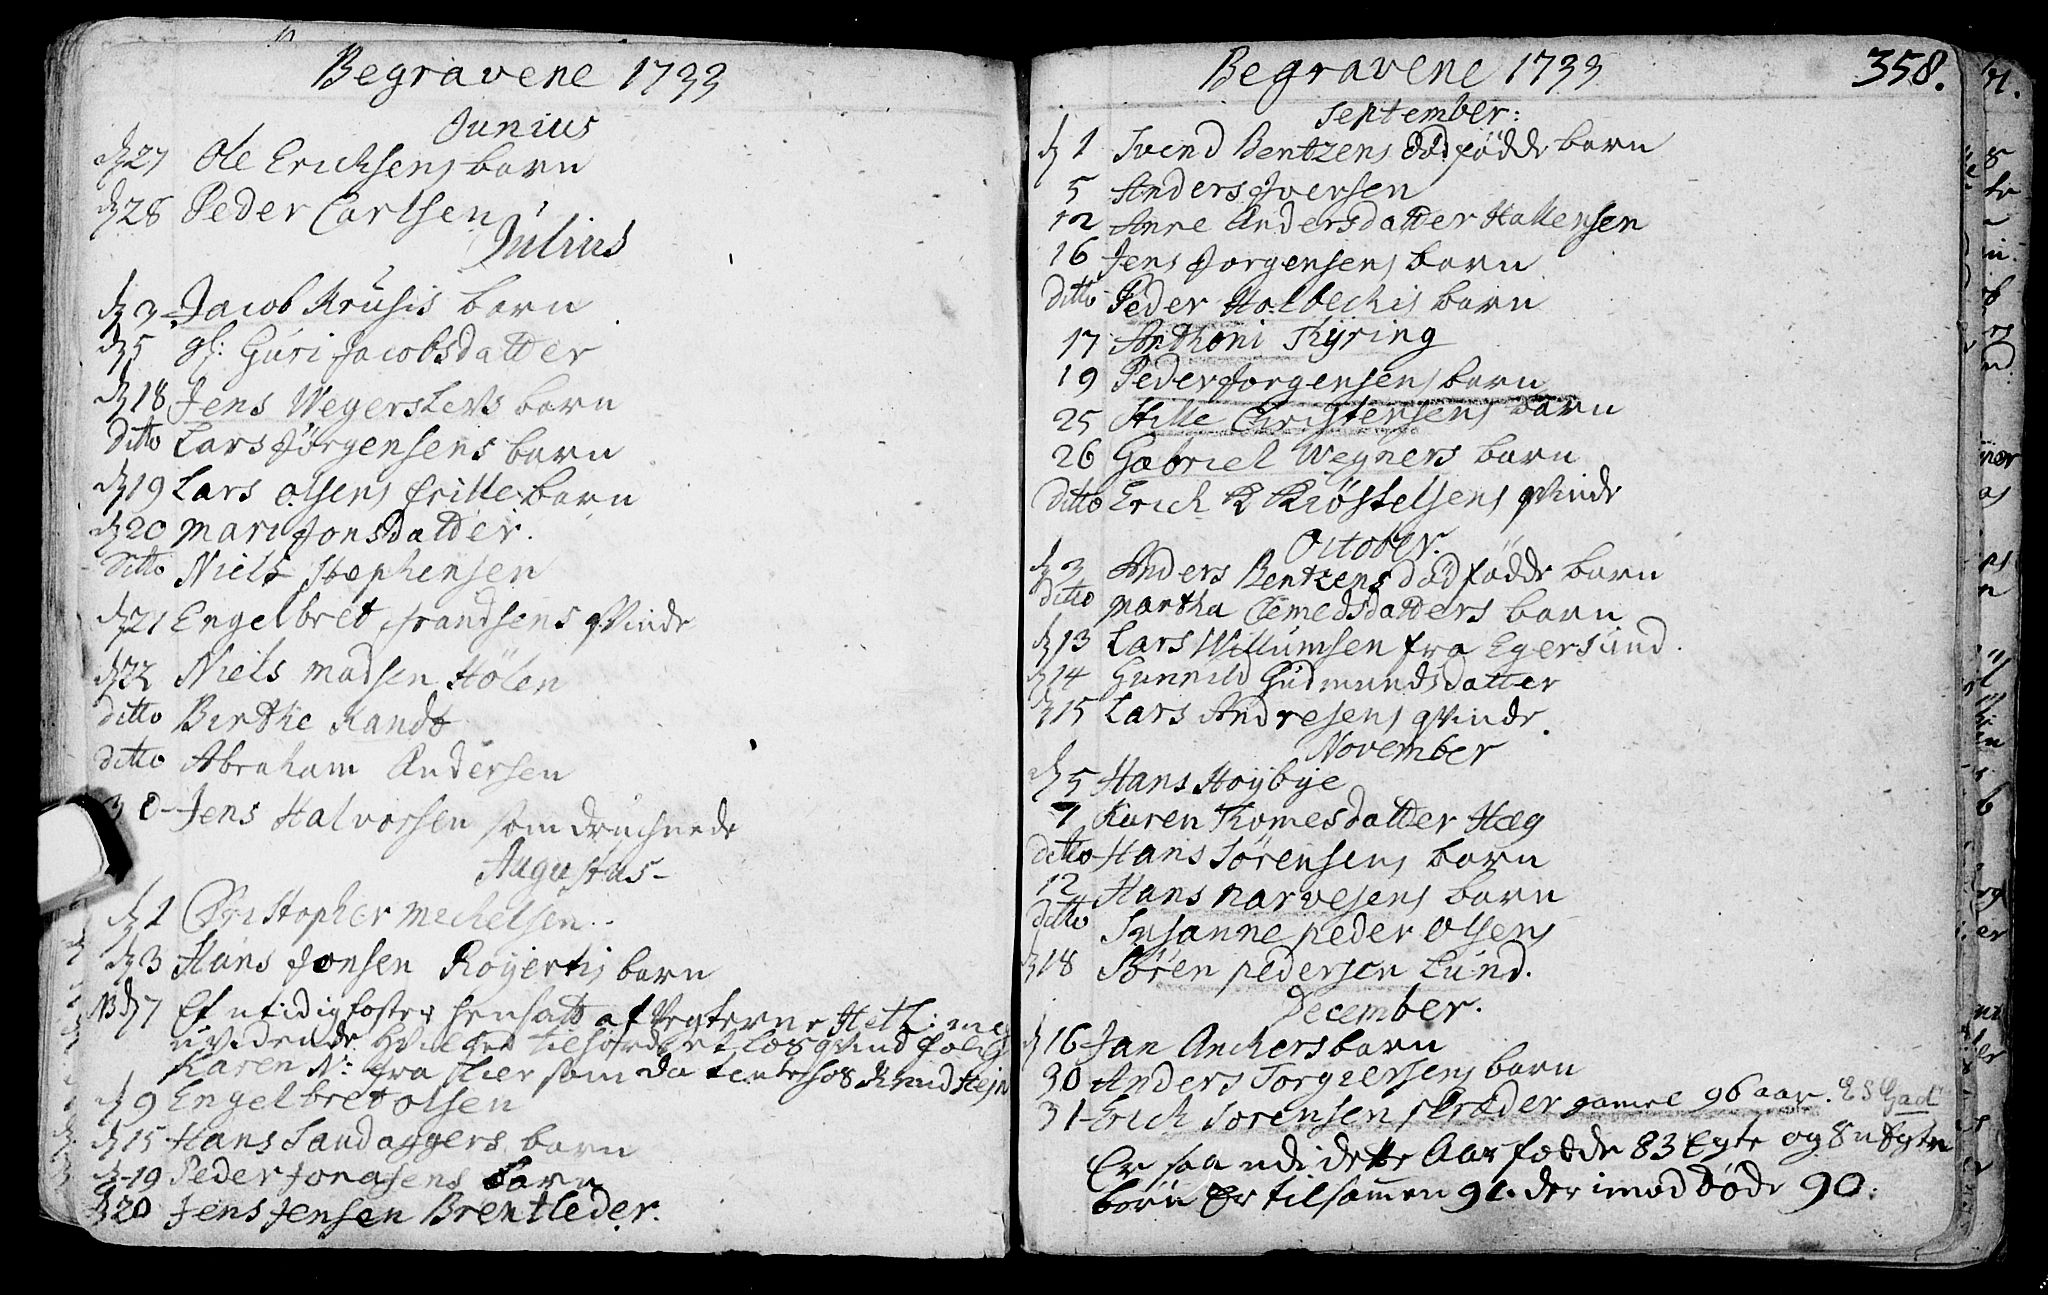 Begravene 1733
Junius
dj 27 Ole Erichsens barn
dj 28 Peder Carlsen
Julius
dj 3 Jacob Krusis barn
dj 5 gl: Guri Jacobsdatter
dj 18 Jens Wegerslevs barn
Ditto Lars Jørgensens barn
dj 19 Lars Olsens barn
dj 20 Mari Jonsdatter.
Ditto Niels Stephensen
dj 21 Engelbret frandsens qvinde
dj 22 Niels Madsen Hølen
ditto Birthe Randt
ditto Abraham Andersen
30 Jens Halvorsen som druchnede
Augustus
dj 1 Christopher Michelsen
dj 3 Hans Jonsen Røyertis barn
NB dj 7 Et utidig foster hensatt af Vegterne
uvidende hvilchet tilhørde et løs qvindfolch
Karen N: fra som da tiente hos Knud
dj 9 Engelbret Olsen
dj 15 Hans Sandaggers barn
dj 19 Peder Jonasens barn
dj 20 Jens Jensen Brentleder.
Begravene 1733
358.
September:
dj 1 Svend Bentzens dødfødde barn
5 Anders Iversen
12 Anne Andersdatter Hallensen
16 Jens Jorgensens barn
Ditto Peder Holbechis barn
17 Anthoni Thyring
19 Peder Jorgensens barn
25 Hille Christensens barn
26 Gabriel Wegners barn
Ditto Erich Kiøstelsens qvinde
October.
dj 3 Anders Bentzens dødfødde barn
ditto Martha Clemedsdatters barn
dj 13 Lars Willumsen fra Egersund.
dj 14 Gunnild Gudmundsdatter
dj 15 Lars Andresens qvinde.
November
dj 5 Hans Høybye
7 Karen Thomesdatter Hæg
ditto Hans Sørensens barn
12 Hans Narvesens barn
ditto Susanne Peder Olsens
dj 18 Søren Pedersen Lund.
December.
dj 16 Jan Anchers barn
30 Anders Torgiersens barn
31 Erich Sorensen skræder gamel 96 aar.
Er saa udi dette Aar fødde 83 Egte og 8 uEgte
børn Er tilsammen 91. der imod døde 90.